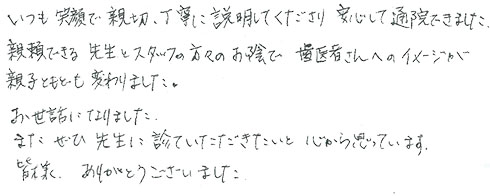 いつも笑顔で親切、丁寧に説明してくださり 安心して通院できました。
親頼できる先生とスタッフの方々のお陰で 歯医者さんへのイメージが
親子ともども変わりました。
お世話になりました。
また ぜひ 先生に診ていただきたいと 心から思っています。
皆様、ありがとうございました。